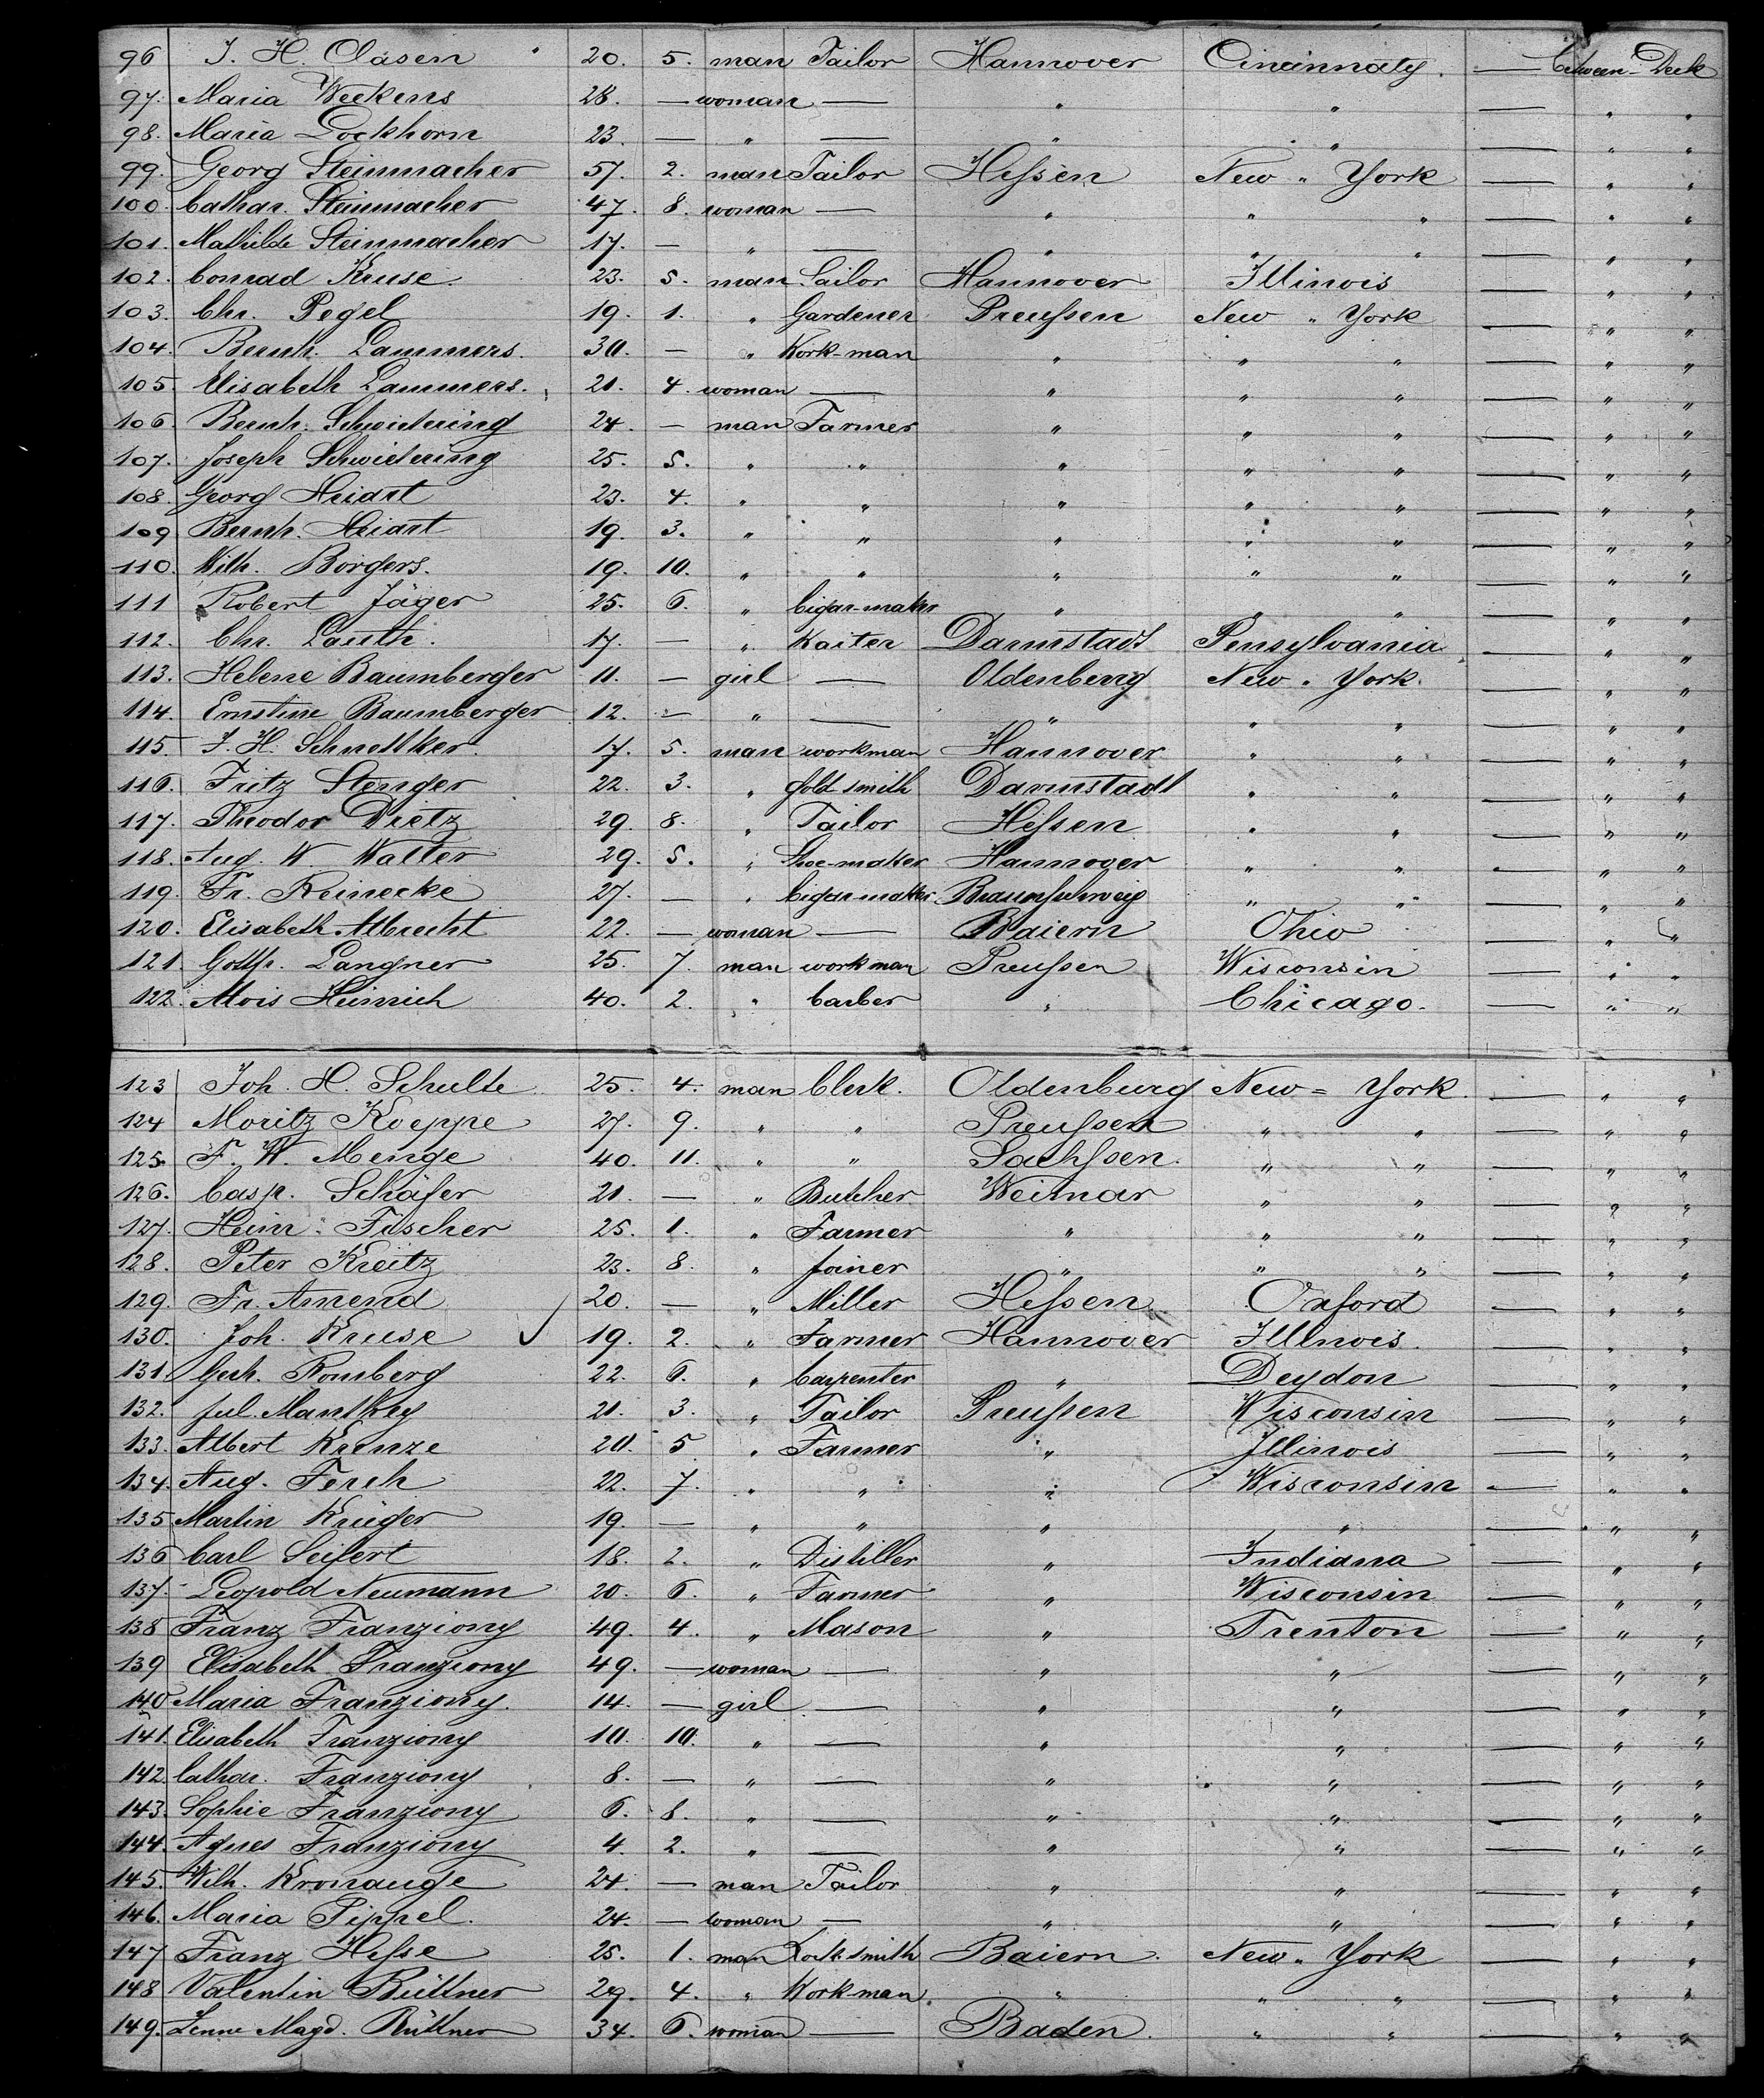 96 J. H. Clasen 20. 5. man Tailor Hannover Cincinnaty. — Between-Deck
97. Maria Weekens 28. — woman — " " — " "
98. Maria Dockhorn 23 — " — " " — " "
99. Georg Steinmacher 57. 2. man Tailor Heßen New " York — " "
100. Cathar. Steinmacher 47. 8. woman — " " " — " "
101. Mathilde Steinmacher 17. — " — " " " — " "
102. Conrad Kruse. 23. 5. man Tailor Hannover Illinois — " "
103. Chr. Pegel 19. 1. " Gardener Preußen New " York — " "
104. Bernh. Lammers. 30. — " Work-man " " " — " "
105. Elisabeth Lammers. 21. 4. woman — " " " — " "
106. Bernh. Schwietering 24. — man Farmer " " " — " "
107. Joseph Schwietering 25. 5. " " " " " — " "
108. Georg Heidt 23. 4. " " " " " — " "
109 Bernh. Heidt 19. 3. " " " " " — " "
110. Wilh. Borgers. 19. 10. " " " " " — " "
111 Robert Jäger 25. 6. " Cigar-maker " " " — " "
112. Chr. Lauth. 17. — " Waiter Darmstadt Pensylvania — " "
113. Helene Baumberger 11. — girl — Oldenberg New " York. — " "
114. Ernstine Baumberger 12. — " — " " " — " "
115. J. H. Schnettker. 17. 5. man workman Hannover " " — " "
116. Fritz Stenger 22. 3. " Gold smith Darmstadt " " — " "
117. Theodor Dietz 29. 8. " Tailor Heßen " " — " "
118. Aug. W. Walter 29. 5. " Shoe-maker Hannover " " — " "
119. Fr. Reinecke 27. — " Cigar-maker Braunschweig " " — " "
120. Elisabeth Albrecht 22. — woman — Baiern Ohio — " "
121. Gottfr. Langner 25. 7. man workman Preußen Wisconsin — " "
122. Alois Heinrich 40. 2. " barber " Chicago. — " "
123 Joh. H. Schulte 25. 4. man Clerk. Oldenburg New = York. — " "
124 Moritz Koeppe 27. 9. " " Preußen " " — " "
125. F. W. Menge 40. 11. " " Sachßen. " " — " "
126. Casp. Schäfer 21. — " Butcher Weimar " " — " "
127. Heinr. Fischer 25. 1. " Farmer " " " — " "
128. Peter Kreitz 23. 8. " Joiner " " " — " "
129. Fr. Amend 20. — " Miller Heßen Oxford — " "
130. Joh. Kruse 19. 2. " Farmer Hannover Illinois. — " "
131. Gerh. Romberg 22. 6. " Carpenter " Deydon — " "
132. Jul. Manthey 21. 3. " Tailor Preußen Wisconsin — " "
133. Albert Krenze 20. 5 " Farmer " Illinois — " "
134. Aug. Ferch 22. 7. " " " Wisconsin — " "
135 Martin Krüger 19. — " " " " — " "
136 Carl Seifert 18. 2. " Distiller " Indiana — " "
137. Leopold Neumann 20. 6. " Farmer " Wisconsin — " "
138 Franz Franziony 49. 4. " Mason " Trenton — " "
139 Elisabeth Franziony 49. — woman — " " — " "
140 Maria Franziony. 14. — girl — " " — " "
141. Elisabeth Franziony 10. 10. " — " " — " "
142. Cathar. Franziony 8. — " — " " — " "
143. Sophie Franziony 6. 8. " — " " — " "
144. Agnes Franziony 4. 2. " — " " — " "
145. Wilh. Kronauge 24. — man Tailor " " — " "
146. Maria Pippel. 24. — woman — " " — " "
147 Franz Heße 25. 1. man Lock smith Baiern. New " York — " "
148 Valentin Büttner 29. 4. " Work-man. " " " — " "
149. Magd. Büttner 34. 6. woman — Baden. " " — " "